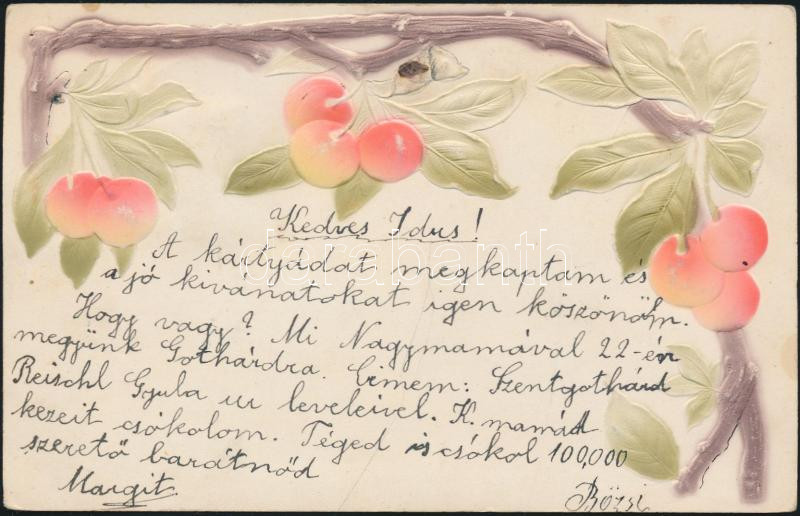 Kedves Idus!
A kártyádat megkaptam és
a jó kivánatokat igen köszönöm.
Hogy vagy? Mi Nagymamával 22-én
megyünk Gothárdra. Cimem: Szentgothárd
Reischl Gyula ur leveleivel. K. mamád
kezeit csókolom. Téged is csókol 100,000
szerető barátnőd
Margit.
Bözsi
darabanth